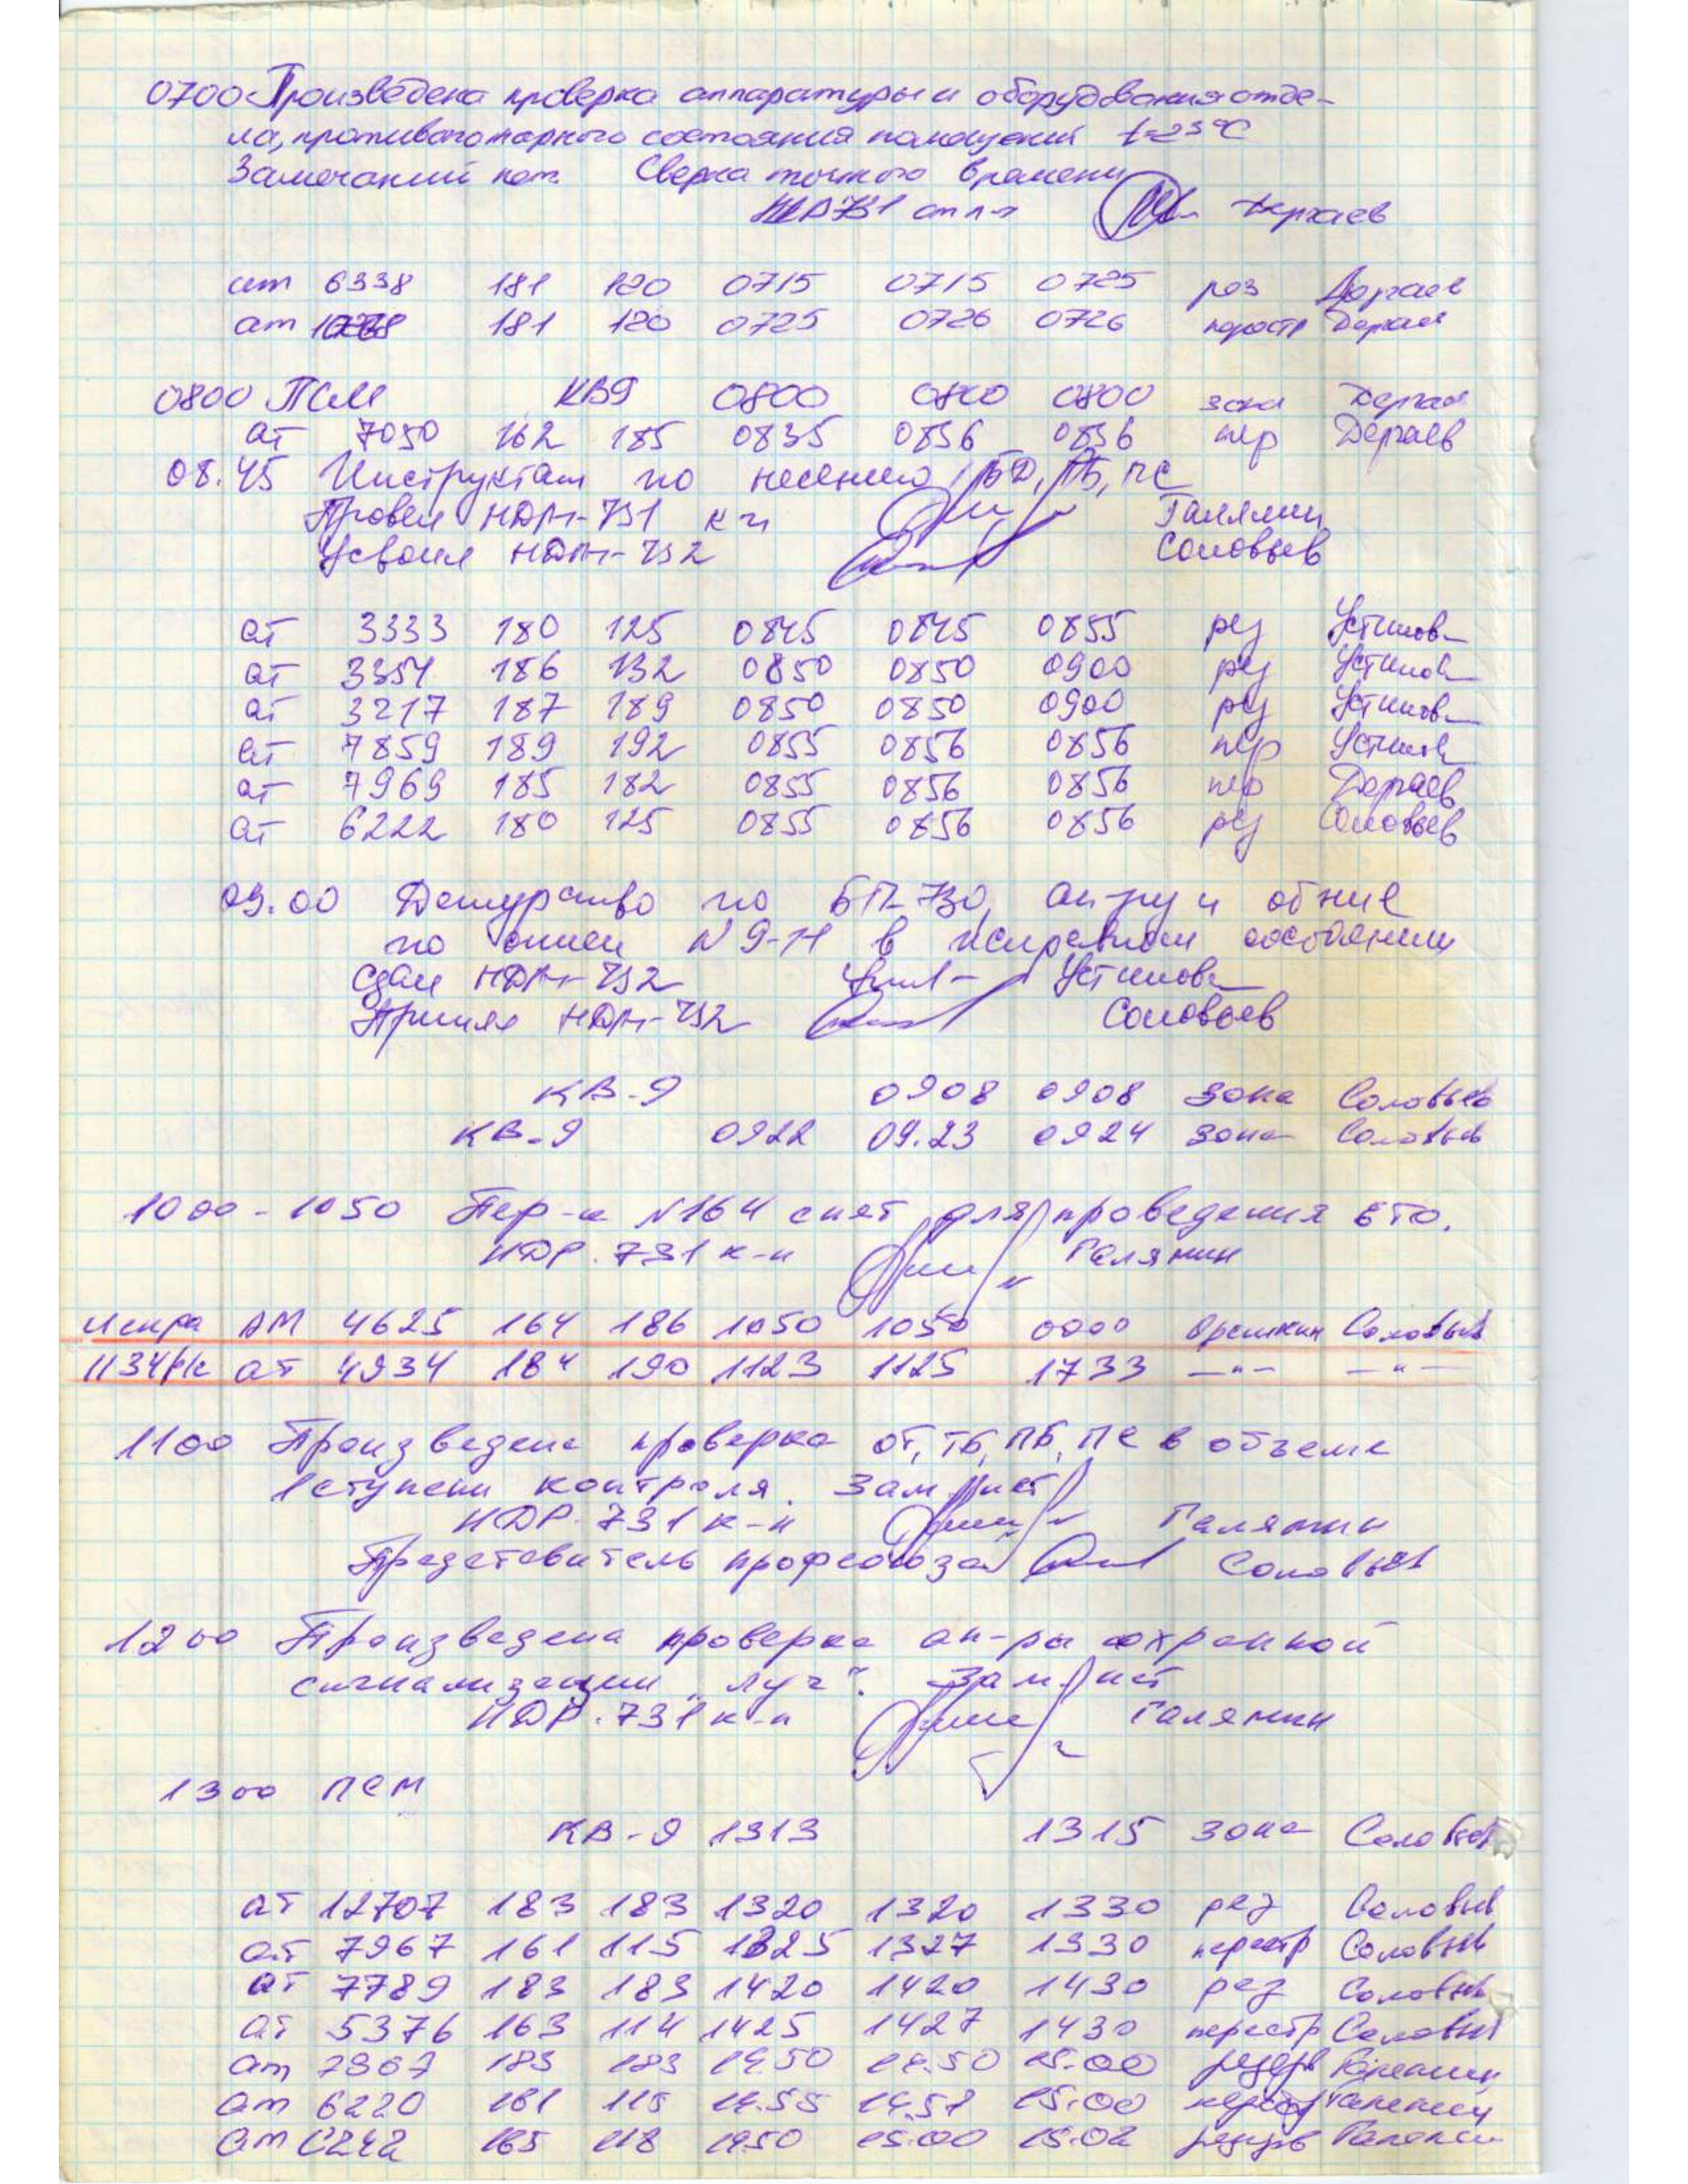 0700 Произведена проверка аппаратуры и оборудования отде-
ла, противопожарного состояния помещений t=23°C
Замечаний нет. Сверка точного времени
Дергаев
ат 6338 181 120 0715 0715 0725 рез Дергаев
ат 181 120 0725 0726 0726 перестр Дергаев
0800 ПСМ КВ9 0800 0800 0800 зона Дергаев
ат 7050 162 185 0835 0836 0836 пер Дергаев
08.45 Инструктаж по несению БД, ПБ, ПС
Провел НДР-731 к-н Галямин
Усвоил НДР-732 Соловьев
ат 3333 180 125 0845 0845 0855 рез Устинов
ат 3354 186 132 0850 0850 0900 рез Устинов
ат 3217 187 189 0850 0850 0900 рез Устинов
ат 7859 189 192 0855 0856 0856 пер Устинов
ат 7969 185 182 0855 0856 0856 пер Дергаев
ат 6222 180 125 0855 0856 0856 рез Соловьев
09.00 Дежурство по БП-730, ап-ру и об-ние
по описи N 9-11 в исправном состоянии
Сдал НДР-732 Устинов
Принял НДР-732 Соловьев
КВ-9 0908 0908 зона Соловьев
КВ-9 0922 09.23 0924 зона Соловьев
1000-1050 Пер-к N164 снят для проведения ЕТО.
НДР.731 к-н Галямин
Искра АМ 4625 164 186 1050 1050 0000 Орешкин Соловьев
1134рк ат 4934 184 190 1123 1125 1733 —"— —"—
1100 Произведена проверка ОТ, ТБ, ПБ, ПС в объеме
1 ступени контроля. Зам. нет
НДР.731 к-н Галямин
Представитель профсоюза Соловьев
1200 Произведена проверка ап-ры охранной
сигнализации "Луч". Зам. нет
НДР.731 к-н Галямин
1300 ПСМ
КВ-9 1313 1315 зона Соловьев
ат 12707 183 183 1320 1320 1330 рез Соловьев
ат 7967 161 115 1325 1327 1330 перестр Соловьев
ат 7789 183 183 1420 1420 1430 рез Соловьев
ат 5376 163 114 1425 1427 1430 перестр Соловьев
ат 7367 183 183 14.50 14.50 15.00 резерв Галямин
ат 6220 161 115 14.55 14.57 15.00 перестр Галямин
ат 6242 165 118 1450 15.00 15.02 резерв Галямин